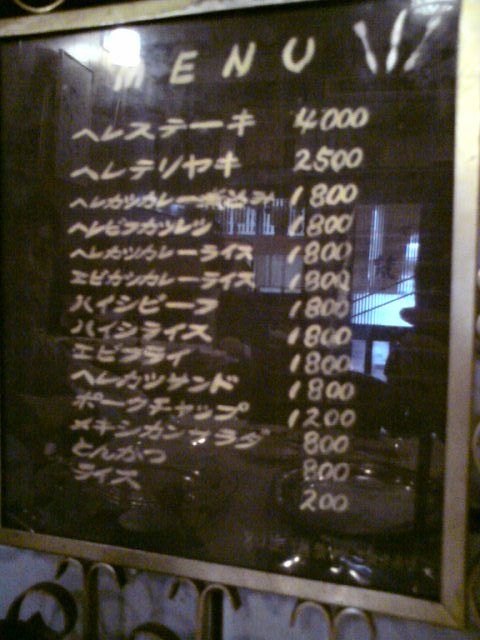 MENU
ヘレステーキ 4000
ヘレテリヤキ 2500
ヘレカツカレー 1800
ヘレビフカツレツ 1800
ヘレカツカレーライス 1800
エビカツカレーライス 1800
ハイシビーフ 1800
ハイシライス 1800
エビフライ 1800
ヘレカツサンド 1800
ポークチャップ 1200
メキシカンサラダ 800
とんかつ 800
ライス 200